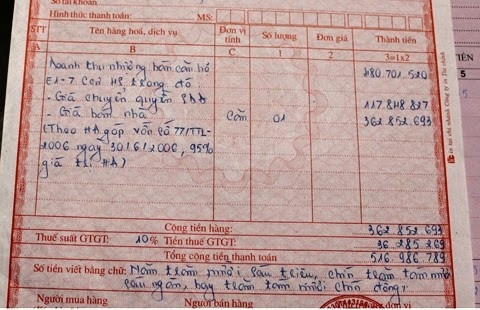 Số tài khoản
Hình thức thanh toán: MS:
STT Tên hàng hoá, dịch vụ Đơn vị tính Số lượng Đơn giá Thành tiền
A B C 1 2 3=1x2
Doanh thu nhượng bán căn hộ 480.701.520
E1-7. Của HĐ, trong đó:
- Giá chuyển quyền SDĐ 117.848.827
- Giá bán nhà Căn 01 362.852.693
(Theo HĐ góp vốn số 77/TTL-
2006 ngày 30/6/2006, 95%
giá trị HĐ)
Cộng tiền hàng: 362.852.693
Thuế suất GTGT: 10% Tiền thuế GTGT: 36.285.269
Tổng cộng tiền thanh toán 516.986.789
Số tiền viết bằng chữ: Năm trăm mười sáu triệu, chín trăm tám mươi
sáu ngàn, bảy trăm tám mươi chín đồng.
Người mua hàng Người bán hàng
TIỀN
5